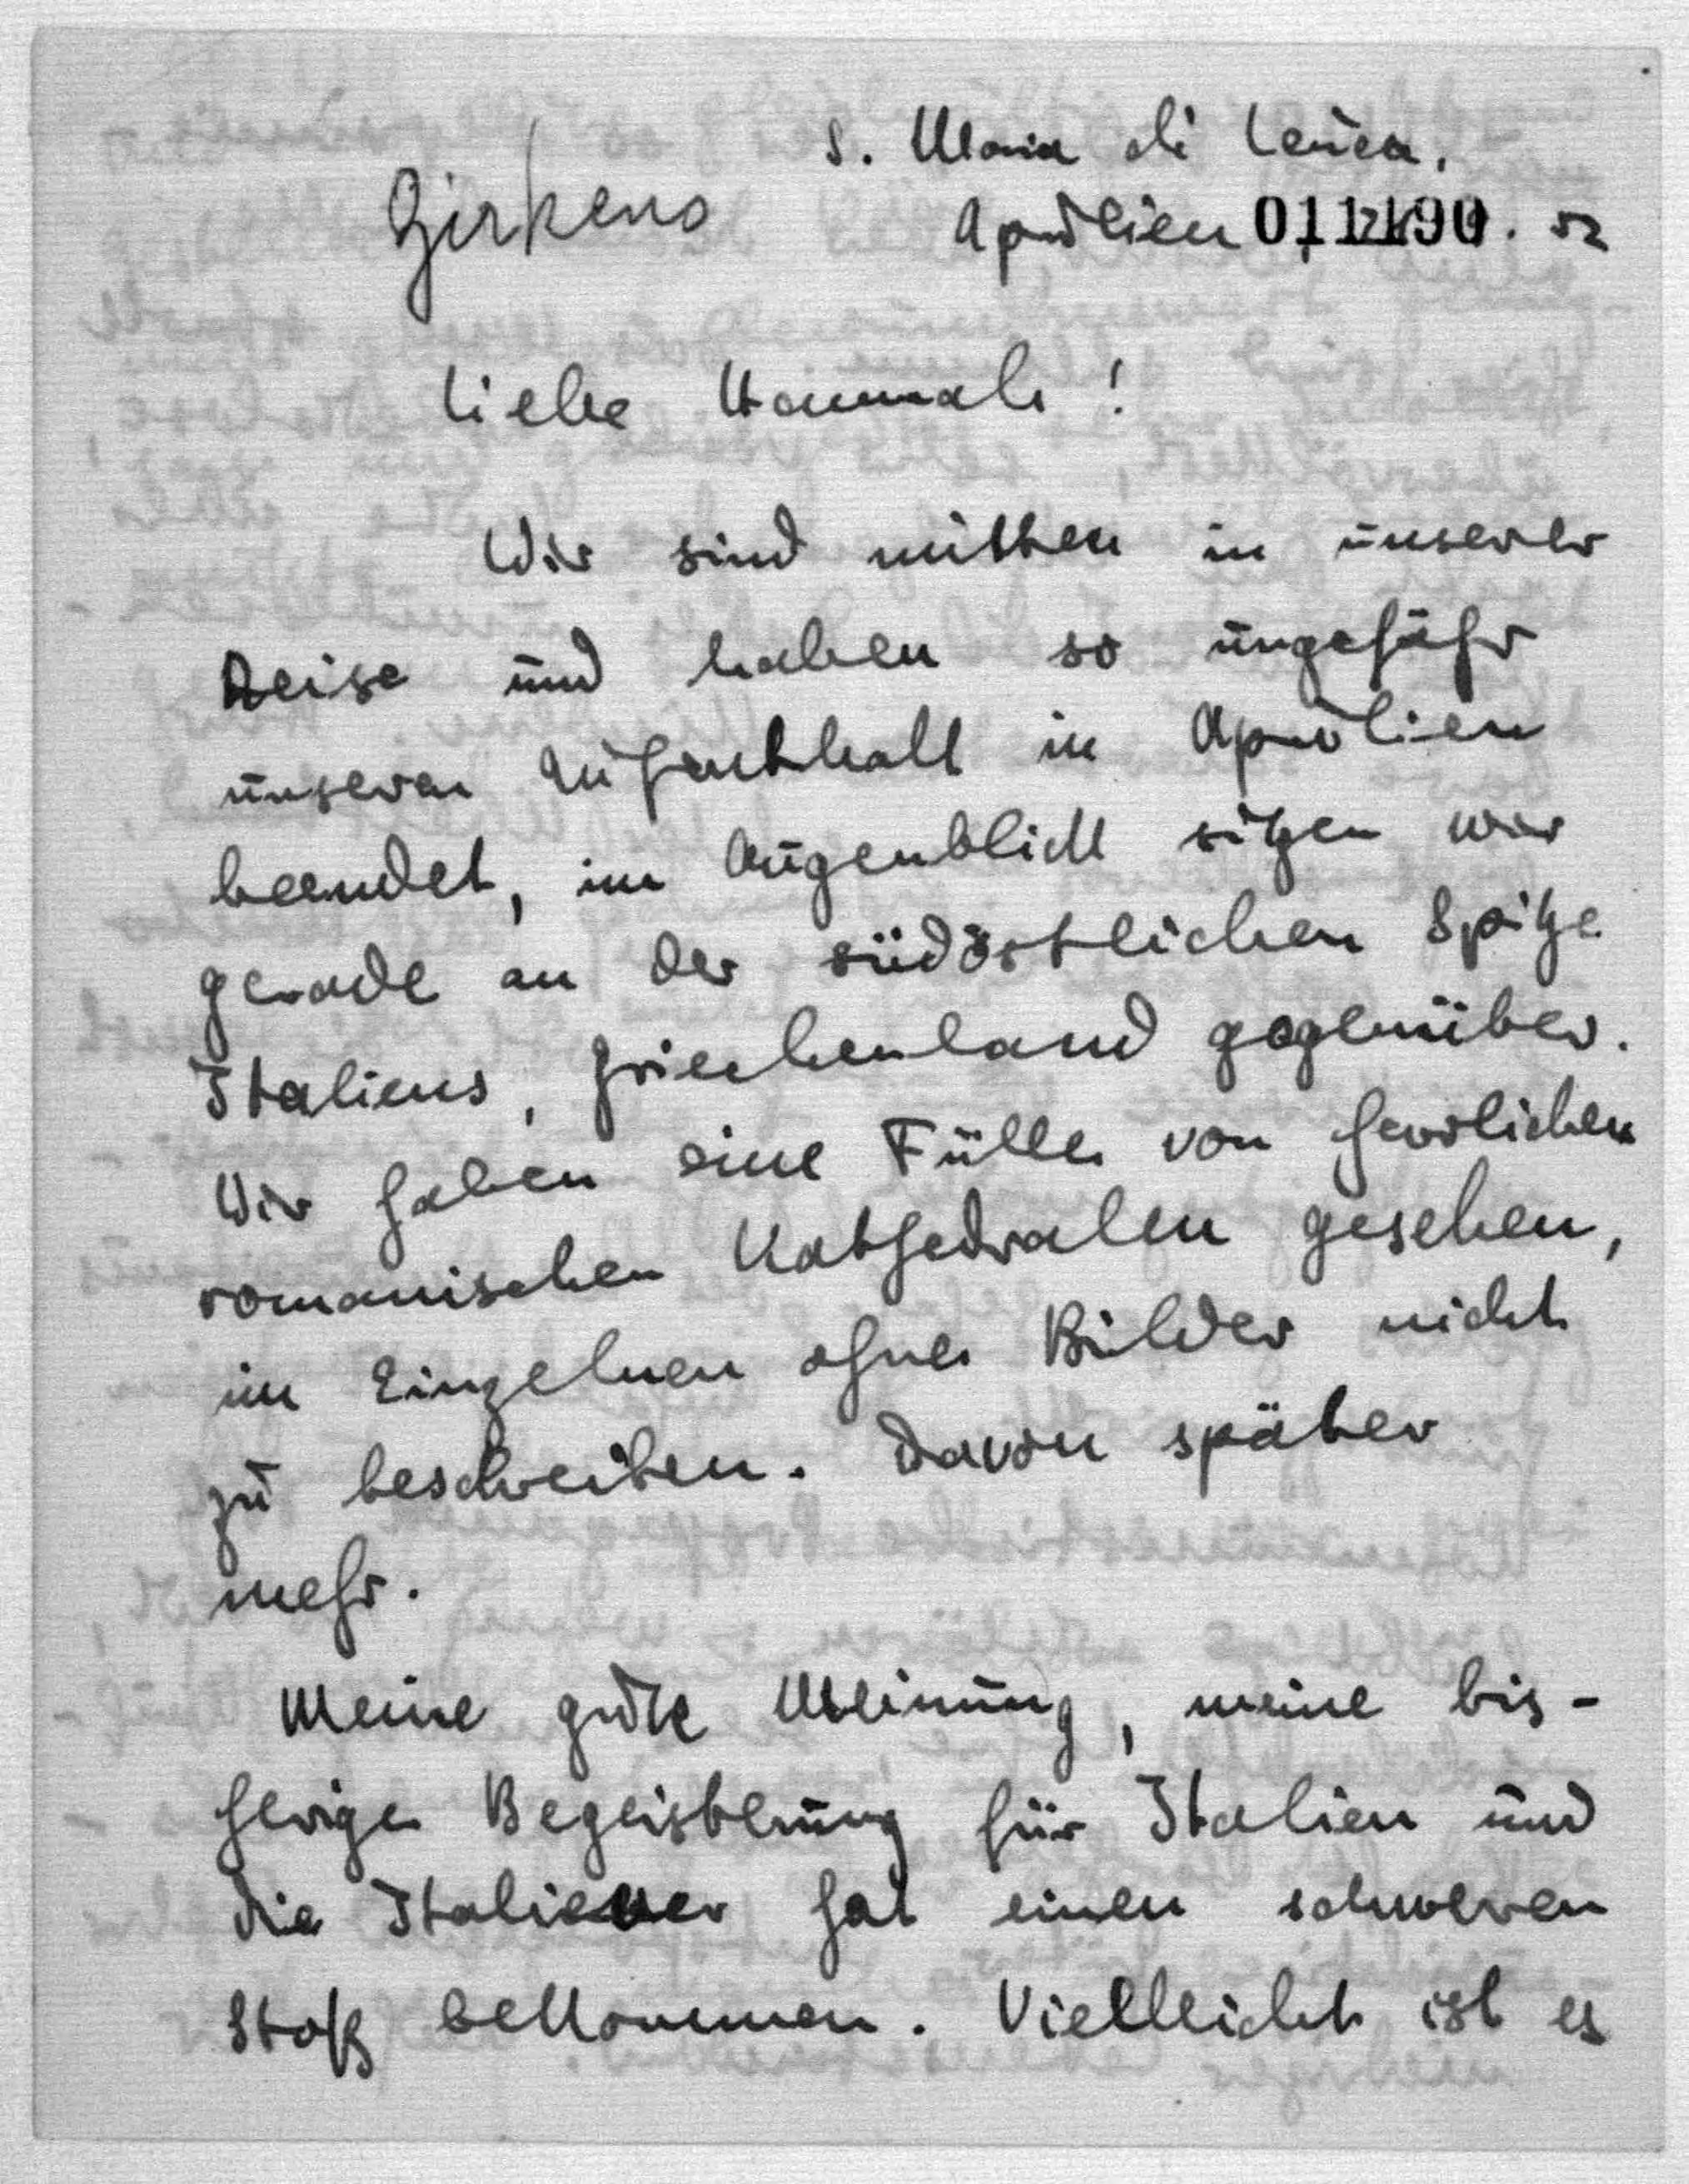 S. Maria di Leuca,
Girkens
Apulien 011190. 52
Liebe Hannah!
Wir sind mitten in unserer
Reise und haben so ungefähr
unseren Aufenthalt in Apulien
beendet, im Augenblick sitzen wir
gerade an der südöstlichen Spitze
Italiens, Griechenland gegenüber.
Wir haben eine Fülle von herrlichen
romanischen Kathedralen gesehen,
im Einzelnen ohne Bilder nicht
zu beschreiben. Davon später
mehr.
Meine gute Meinung, meine bis-
herige Begeisterung für Italien und
die Italiener hat einen schweren
Stoß bekommen. Vielleicht ist es